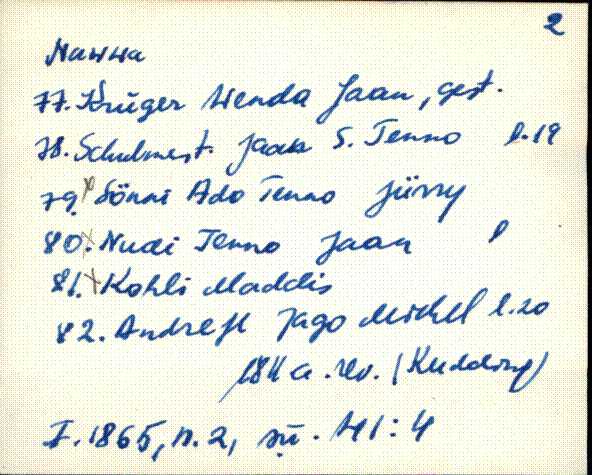 2
Nawwa
77. Krüger Wenda Jaan, gest.
78. Schulmest. Jaan S. Tenno l. 19
79. Sönni Ado Tenno Jürry
80. Nudi Tenno Jaan l
81. Kohli Maddis
82. Andresst Jago Michel l. 20
1811 a. rev. (Kudding)
I. 1865, n. 2, sü. 41: 4